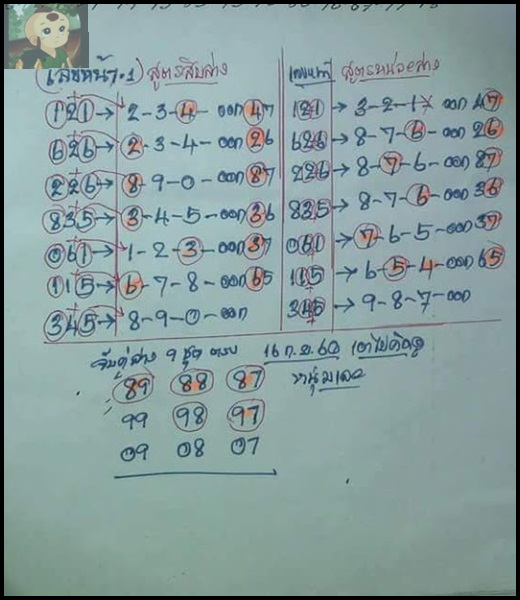 (เลขหน้า.1) สูตรสิบล่าง
121 → 2-3-4-ออก 47
626 → 2-3-4-ออก 26
226 → 8-9-0-ออก 87
835 → 3-4-5-ออก 36
061 → 1-2-3-ออก 37
115 → 6-7-8-ออก 65
345 → 8-9-0-ออก
สูตรหน่วยล่าง
121 → 3-2-1x ออก 47
626 → 8-7-6-ออก 26
226 → 8-7-6-ออก 87
835 → 8-7-6-ออก 36
061 → 7-6-5-ออก 37
115 → 6-5-4-ออก 65
345 → 9-8-7-ออก
จับคู่ล่าง 9 ชุด ครบ 16 ก.ย. 60
89 88 87
99 98 97
09 08 07